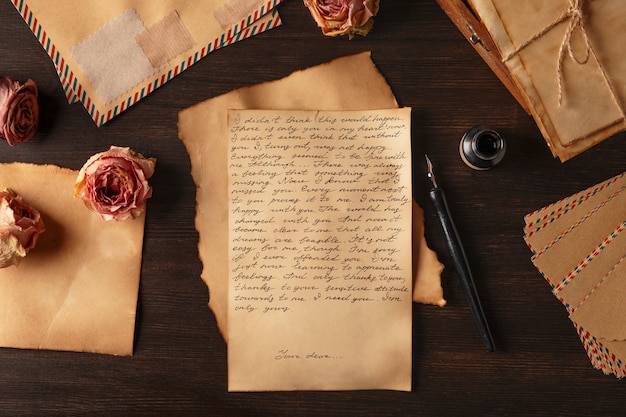 I didn't think this would happen.
There is only you in my heart now.
I didn't even think that without
you I was only not happy.
Everything seemed to be fine with
me although... There was always
a feeling that something was
missing. Now I know that I
missed you. Every moment next
to you proves it to me. I am truly
happy with you. The world has
changed with you. And now it
became clear to me that all my
dreams are feasible. It's not
easy for me, though. I'm sorry
if I ever offended you. I'm
just now learning to appreciate
feelings. And only thanks to you,
thanks to your sensitive attitude
towards to me. I need you. I'm
only yours.
Your dear...